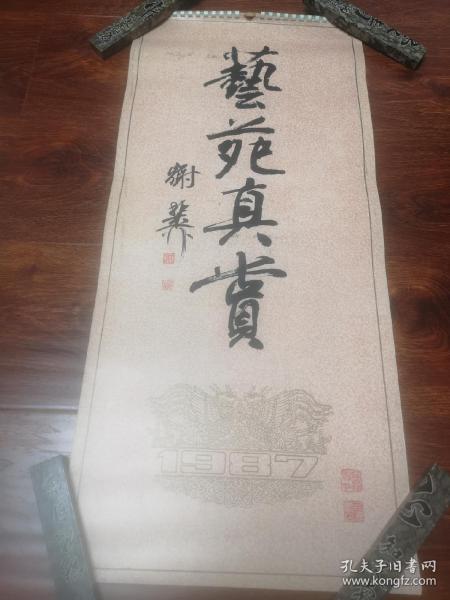 藝苑真賞
謝
1987
孔夫子旧书网
www.kongfz.com